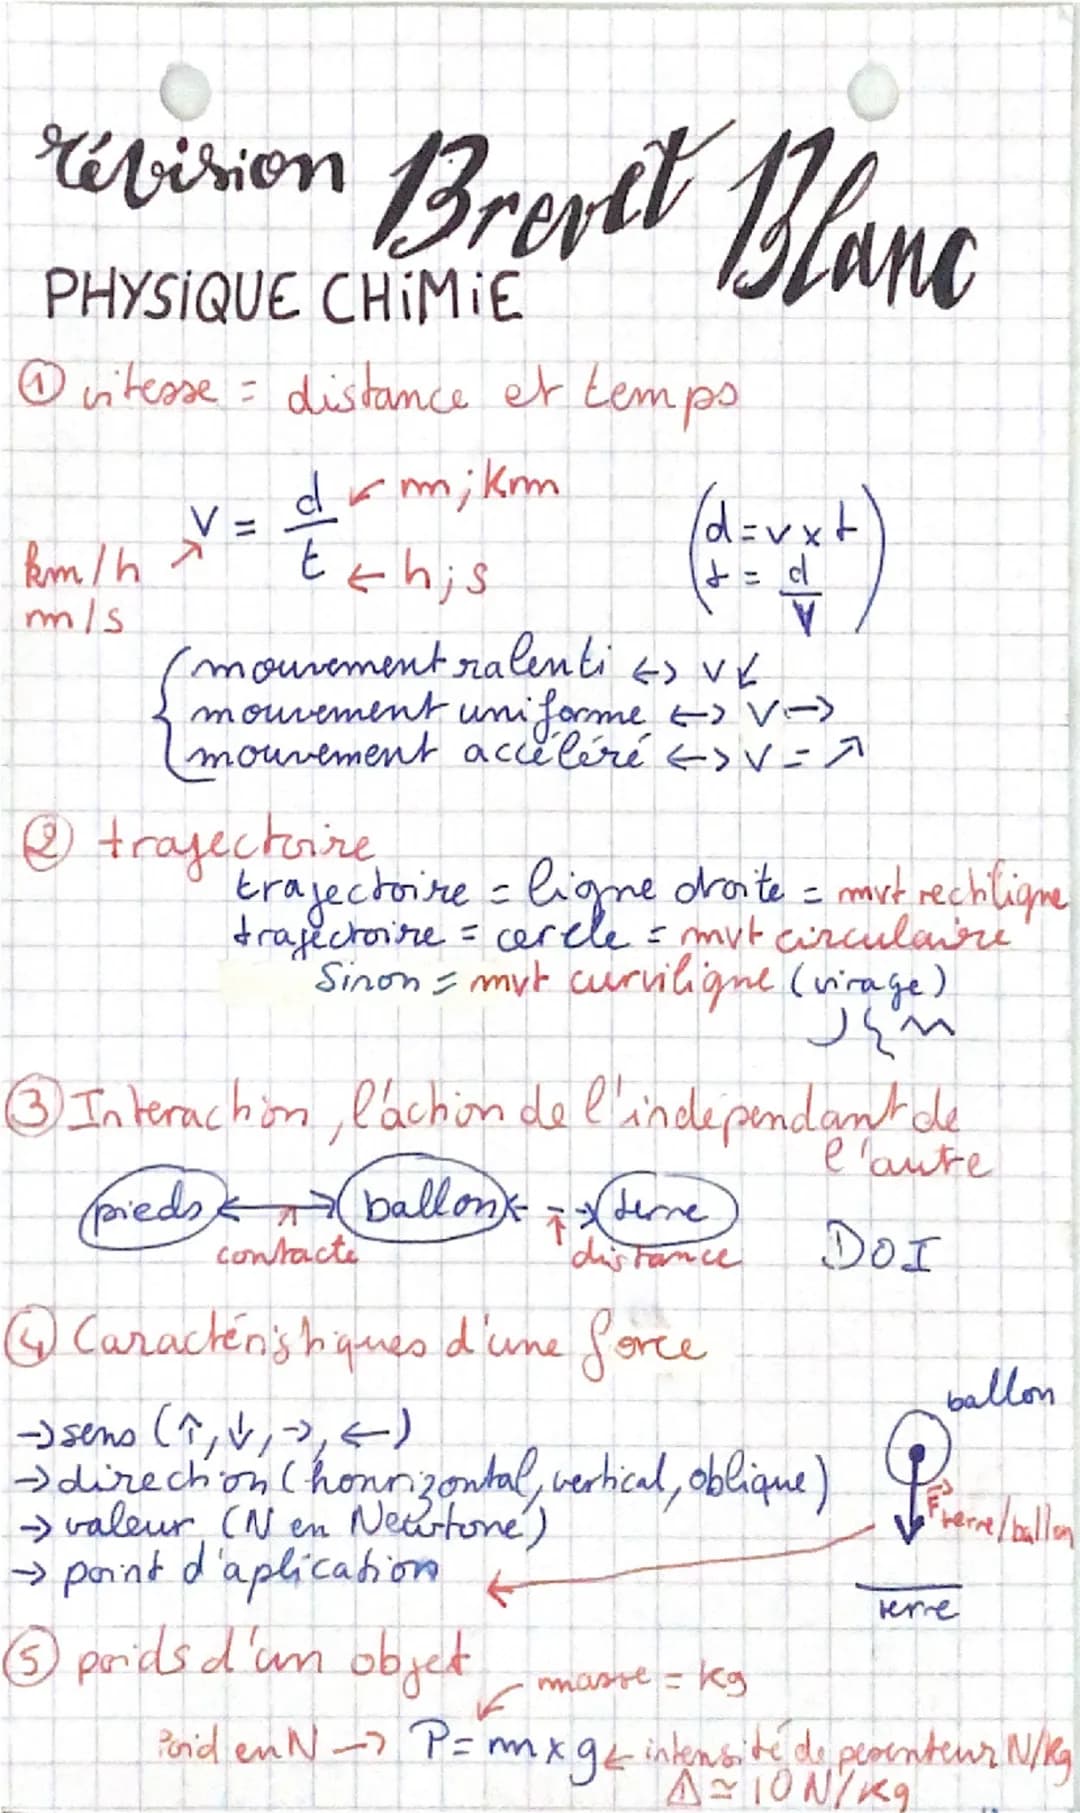 révision Brevet Blanc
PHYSIQUE CHIMIE
① vitesse = distance et temps
V = d/t ← m ; km
← h ; s
km/h
m/s
(d = v x t
t = d/V)
mouvement ralenti ↔ v ↙
mouvement uniforme ↔ V →
mouvement accéléré ↔ V = ↗
② trajectoire
trajectoire = ligne droite = mvt rectiligne
trajectoire = cercle = mvt circulaire
Sinon = mvt curviligne (virage)
③ Interaction, l'action de l'indépendant de
l'autre
pieds ↔ ballon ↔ terre
contacte distance DOI
④ Caractéristiques d'une force
→ sens (↑, ↓, →, ←)
→ direction (honrizontal, vertical, oblique)
→ valeur (N en Newtone)
→ point d'aplication
ballon
F terre/ballon
terre
⑤ poids d'un objet
masse = kg
Poid en N → P = m x g ← intensité de pesenteur N/kg
Δ ≃ 10 N/kg